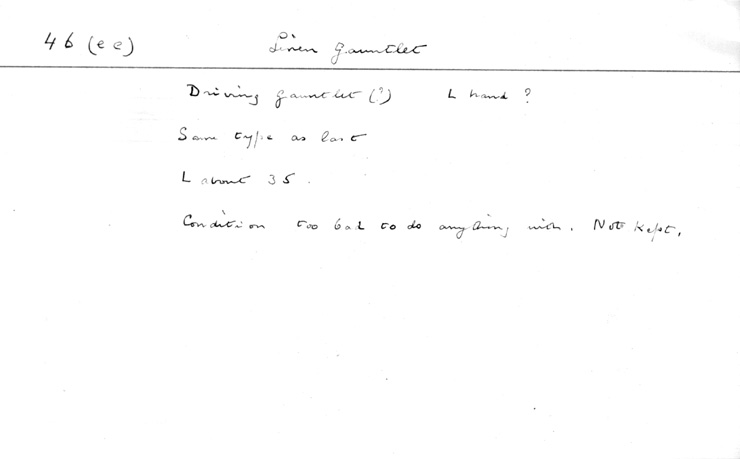 46 (ee) Linen gauntlet
Driving gauntlet (?) L hand ?
Same type as last
L about 35.
Condition too bad to do anything with. Not kept.